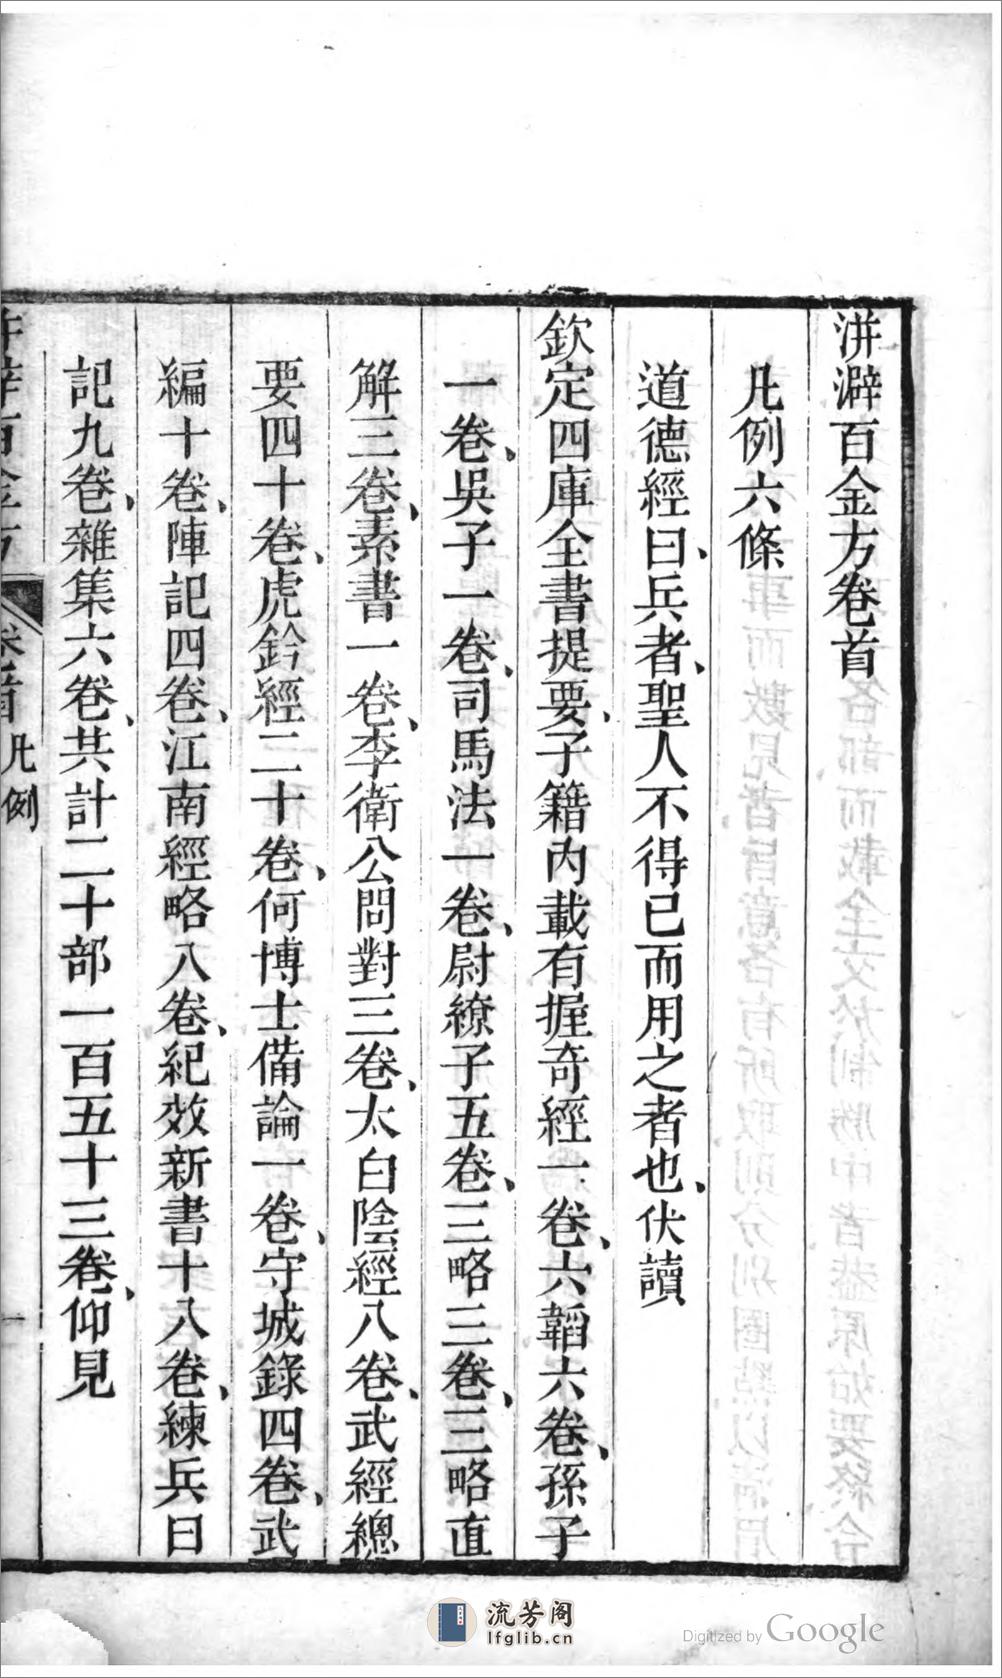 洴澼百金方卷首
凡例六條
道德經曰、兵者、聖人不得已而用之者也、伏讀
欽定四庫全書提要、子籍內載有握奇經一卷、六韜六卷、孫子
一卷、吳子一卷、司馬法一卷、尉繚子五卷、三略三卷、三略直
解三卷、素書一卷、李衛公問對三卷、太白陰經八卷、武經總
要四十卷、虎鈐經二十卷、何博士備論一卷、守城錄四卷、武
編十卷、陣記四卷、江南經略八卷、紀效新書十八卷、練兵日
記九卷、雜集六卷、共計二十部一百五十三卷、仰見
百金方 卷首 凡例 一
流芳阁
lfglib.cn
Digitized by Google